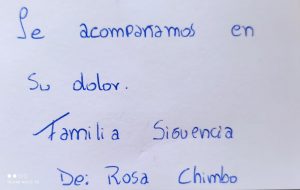 Se acompañamos en
Su dolor.
Familia Siguencia
De: Rosa Chimbo